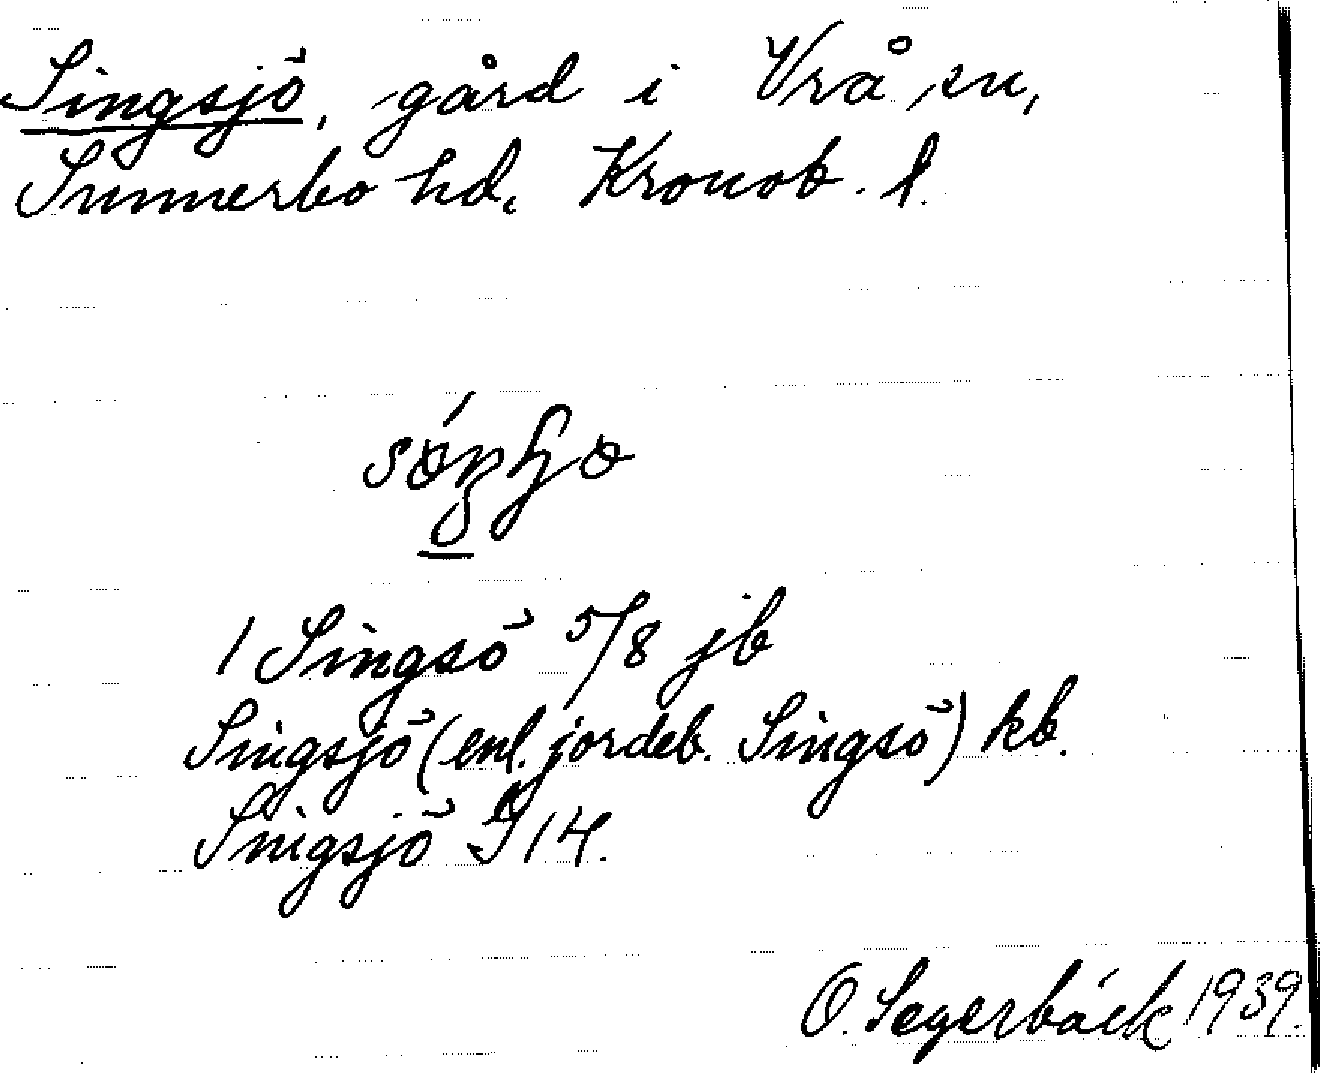 Singsjö, gård i Vrå sn,
Sunnerbo hd. Kronob. l.
1 Singsö 5/8 jb
Singsjö (enl. jordeb. Singsö) kb.
Singsjö J 14.
O. Segerbäck 1939.